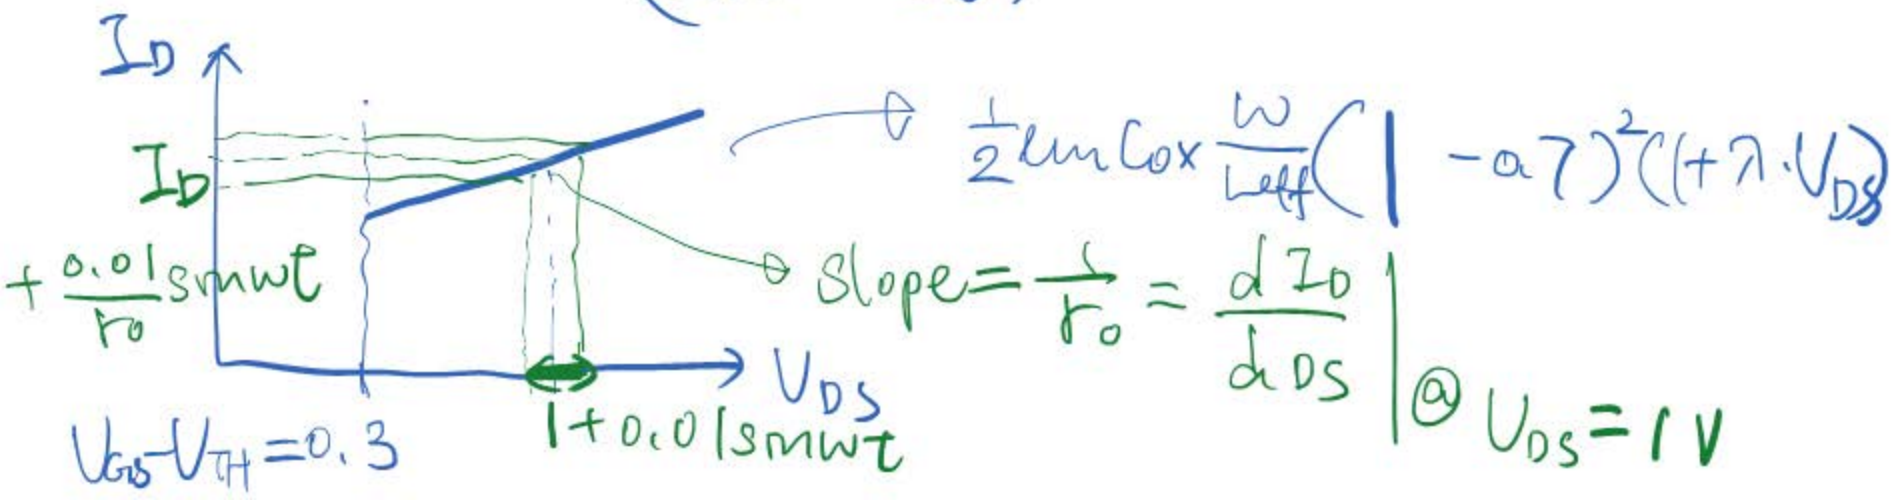 I_D
I_D
+ 0.01/r_0 sinωt
V_GS-V_TH=0.3
V_DS
1+0.01sinωt
1/2 μn Cox W/Leff (1 -0.7)²(1+λ·V_DS)
Slope = 1/r_0 = dI_D/dDS | @ V_DS=1V